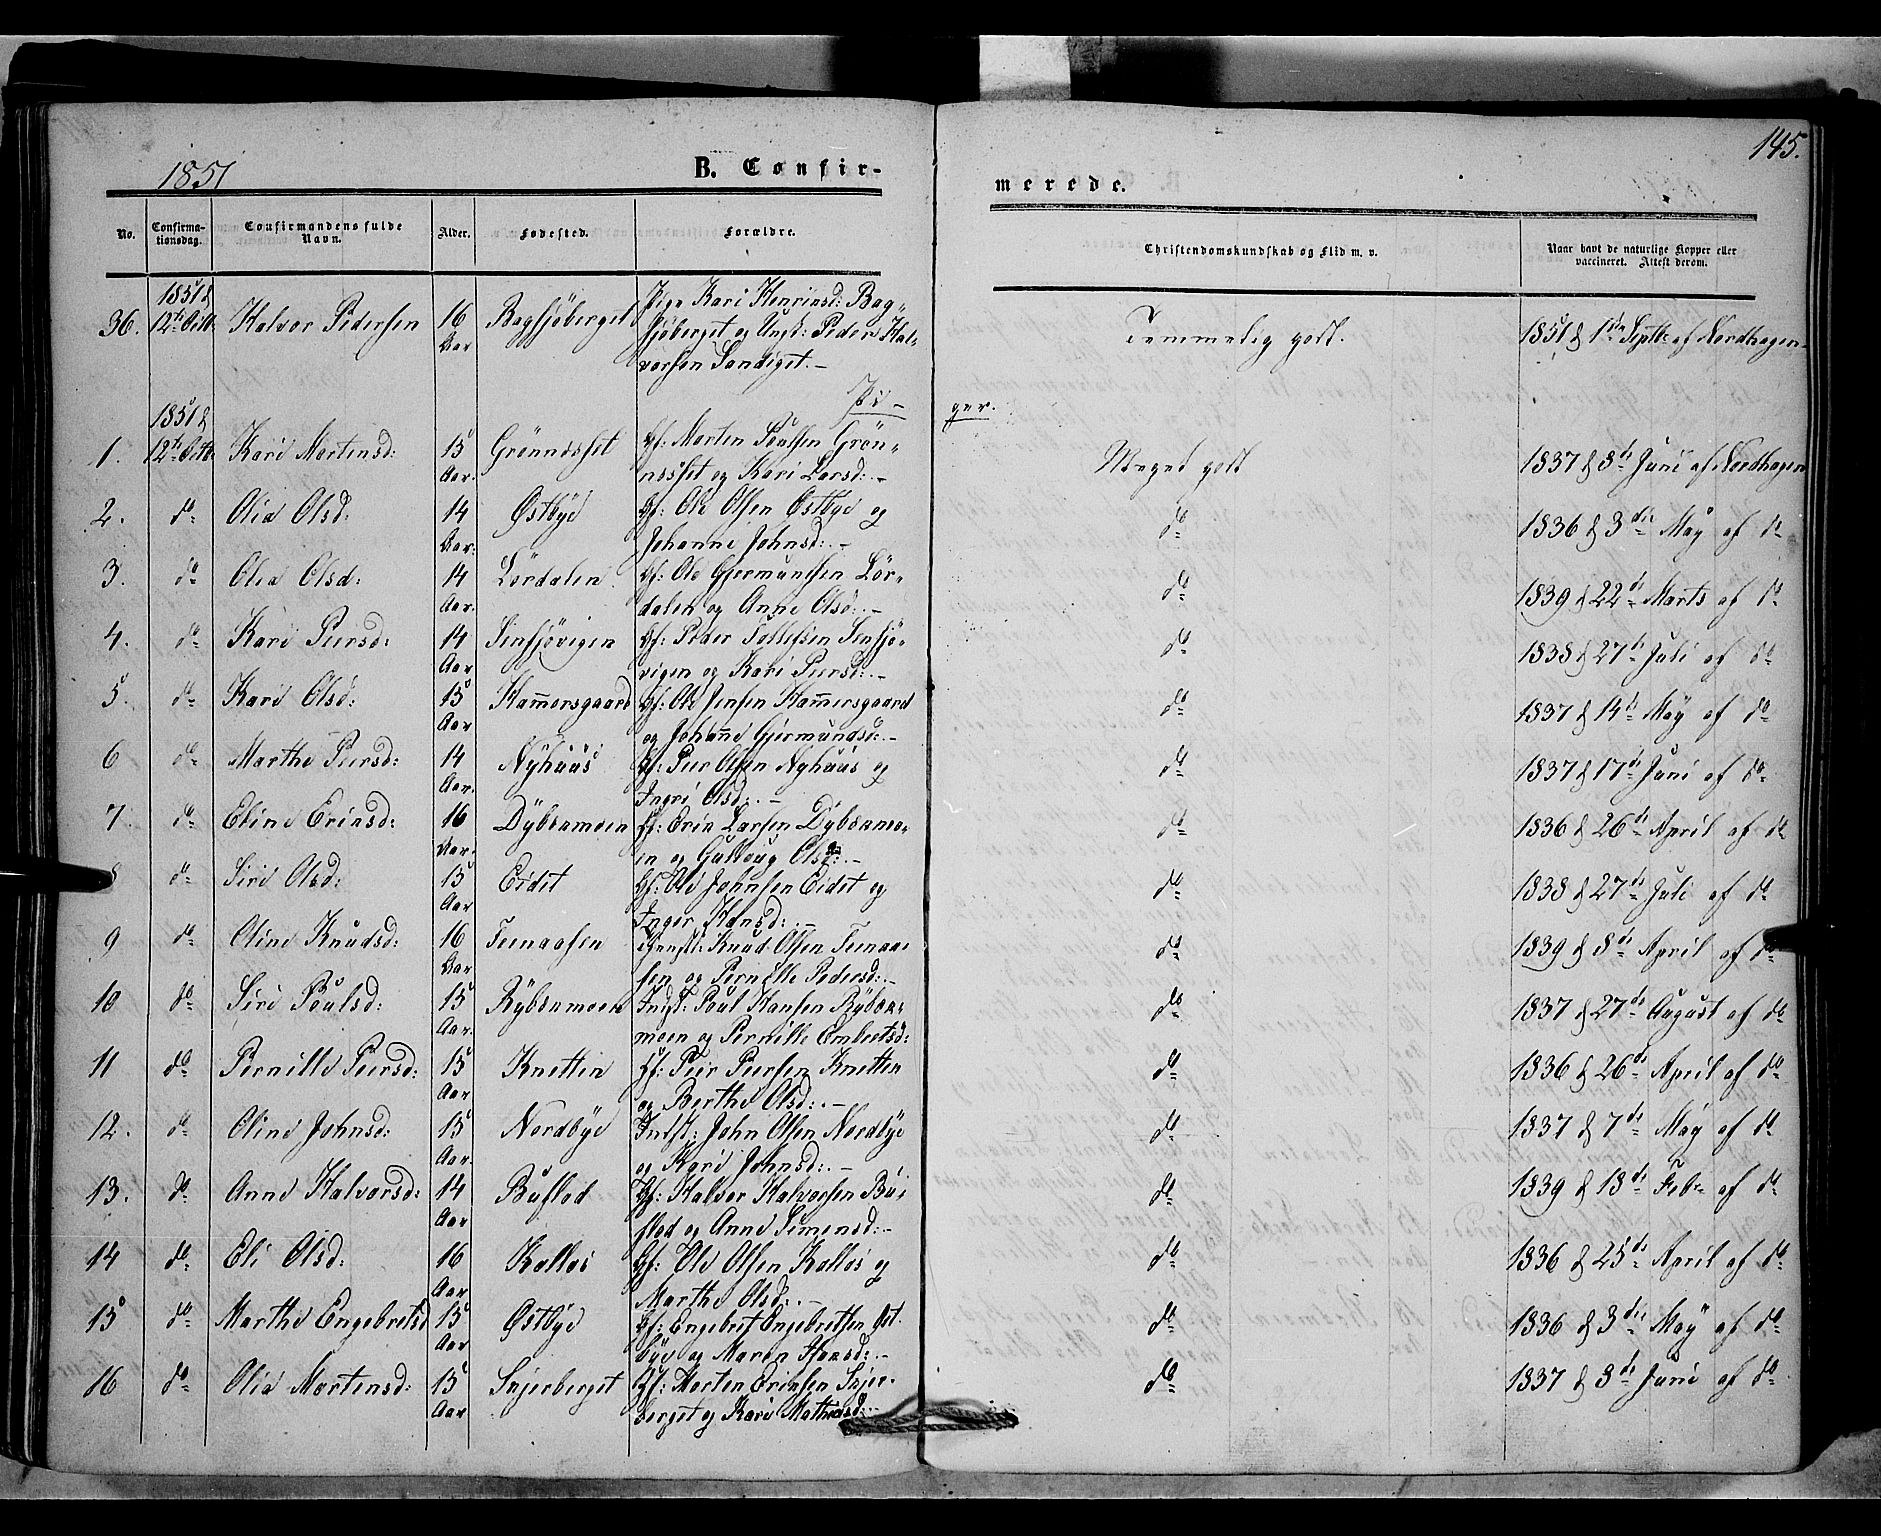 1851
B. Confir-
merede.
145.
No.
Confirma-
tionsdag.
Confirmandens fulde
Navn.
Alder.
Fødested.
Forældre.
Christendomskundskab og Flid m. v.
Naar havt de naturlige Kopper eller
vaccineret. Attest derom.
1851 d
36. 12te Octb. Halvor Pedersen 16 Aar Bagsjöberget Pige Kari Henriksd: Bag-
sjöberget og Ungk: Peder Hal-
vorsen Sandiget.- Temmelig godt. 1851 d 1ste Septbr af Nordhagen
Pi-
ger.
1851 d
1. 12te Octb. Kari Mortensd: 15 Aar. Grönnesset Gf: Morten Poulsen Grön-
nesset og Kari Larsd:.- Meget godt 1837 d 8de Juni af Nordhagen
2. do Olia Olsd: 14 Aar. Østbye Gf: Ole Olsen Østbye og
Johanne Johnsd:.- do 1836 d 3die May af do
3. do Olia Olsd: 14 Aar. Lördalen Gf: Ole Gjermundsen Lör-
dalen og Anne Olsd:.- do 1839 d 22de Marts af do
4. do Kari Peersd: 14 Aar Sensjövigen Gf: Peder Tollefsen Sensjö-
vigen og Kari Peersd:.- do 1838 d 27de Juli af do
5. do Kari Olsd: 15 Aar Hamersgaard Gf: Ole Jensen Hamersgaard
og Johane Gjermundsd:.- do 1837 d 14de May af do
6 do Marthe Peersd: 14 Aar. Nyhuus Gf: Peer Olsen Nyhuus og
Ingri Olsd:.- do 1837 d 17de Juni af do
7. do Eline Eriksd: 16 Aar. Dybenmoen Gf: Erik Larsen Dybenmo-
en og Gulloug Olsd:.- do 1836 d 26de April af do
8 do Siri Olsd: 15 Aar Eidet Gf: Ole Johnsen Eidet og
Inger Hansd:.- do 1838 d 27de Juli af do
9 do Oline Knudsd: 16 Aar Knud Olsen
sen og Pernille Pedersd:.- do 1839 d 8de April af do
10 do Siri Poulsd: 15 Aar. Rybenmoen Indst: Poul Hansen Ryben-
moen og Pernille Embretsd: do 1837 d 27de August af do
11 do Pernille Peersd: 15 Aar Knetten Gf: Peer Peersen Knetten
og Berthe Olsd:.- do 1836 d 26de April af do
12. do Oline Johnsd: 15 Aar. Nordbye Indst: John Olsen Nordbye
og Kari Johnsd:.- do 1837 d 7de May af do
13. do Anne Halvorsd: 14 Aar Buflod Gf: Halvor Halvorsen Bu-
flod og Anne Simensd:.- do 1839 d 18de Febr af do
14 do Eli Olsd: 16 Aar Kolos Gf: Ole Olsen Kolos og
Marthe Olsd:.- do 1836 d 25de April af do
15 do Marthe Engebretsd 15 Aar Østbye Gf: Engebret Engebretsen Øst-
bye og Maren Hansd:.- do 1836 d 3die May af do
16 do Olia Mortensd: 15 Aar Snjerberget Gf: Morten Eriksen Snjer-
berget og Kari Mathiesd:.- do 1837 d 8de Juni af do